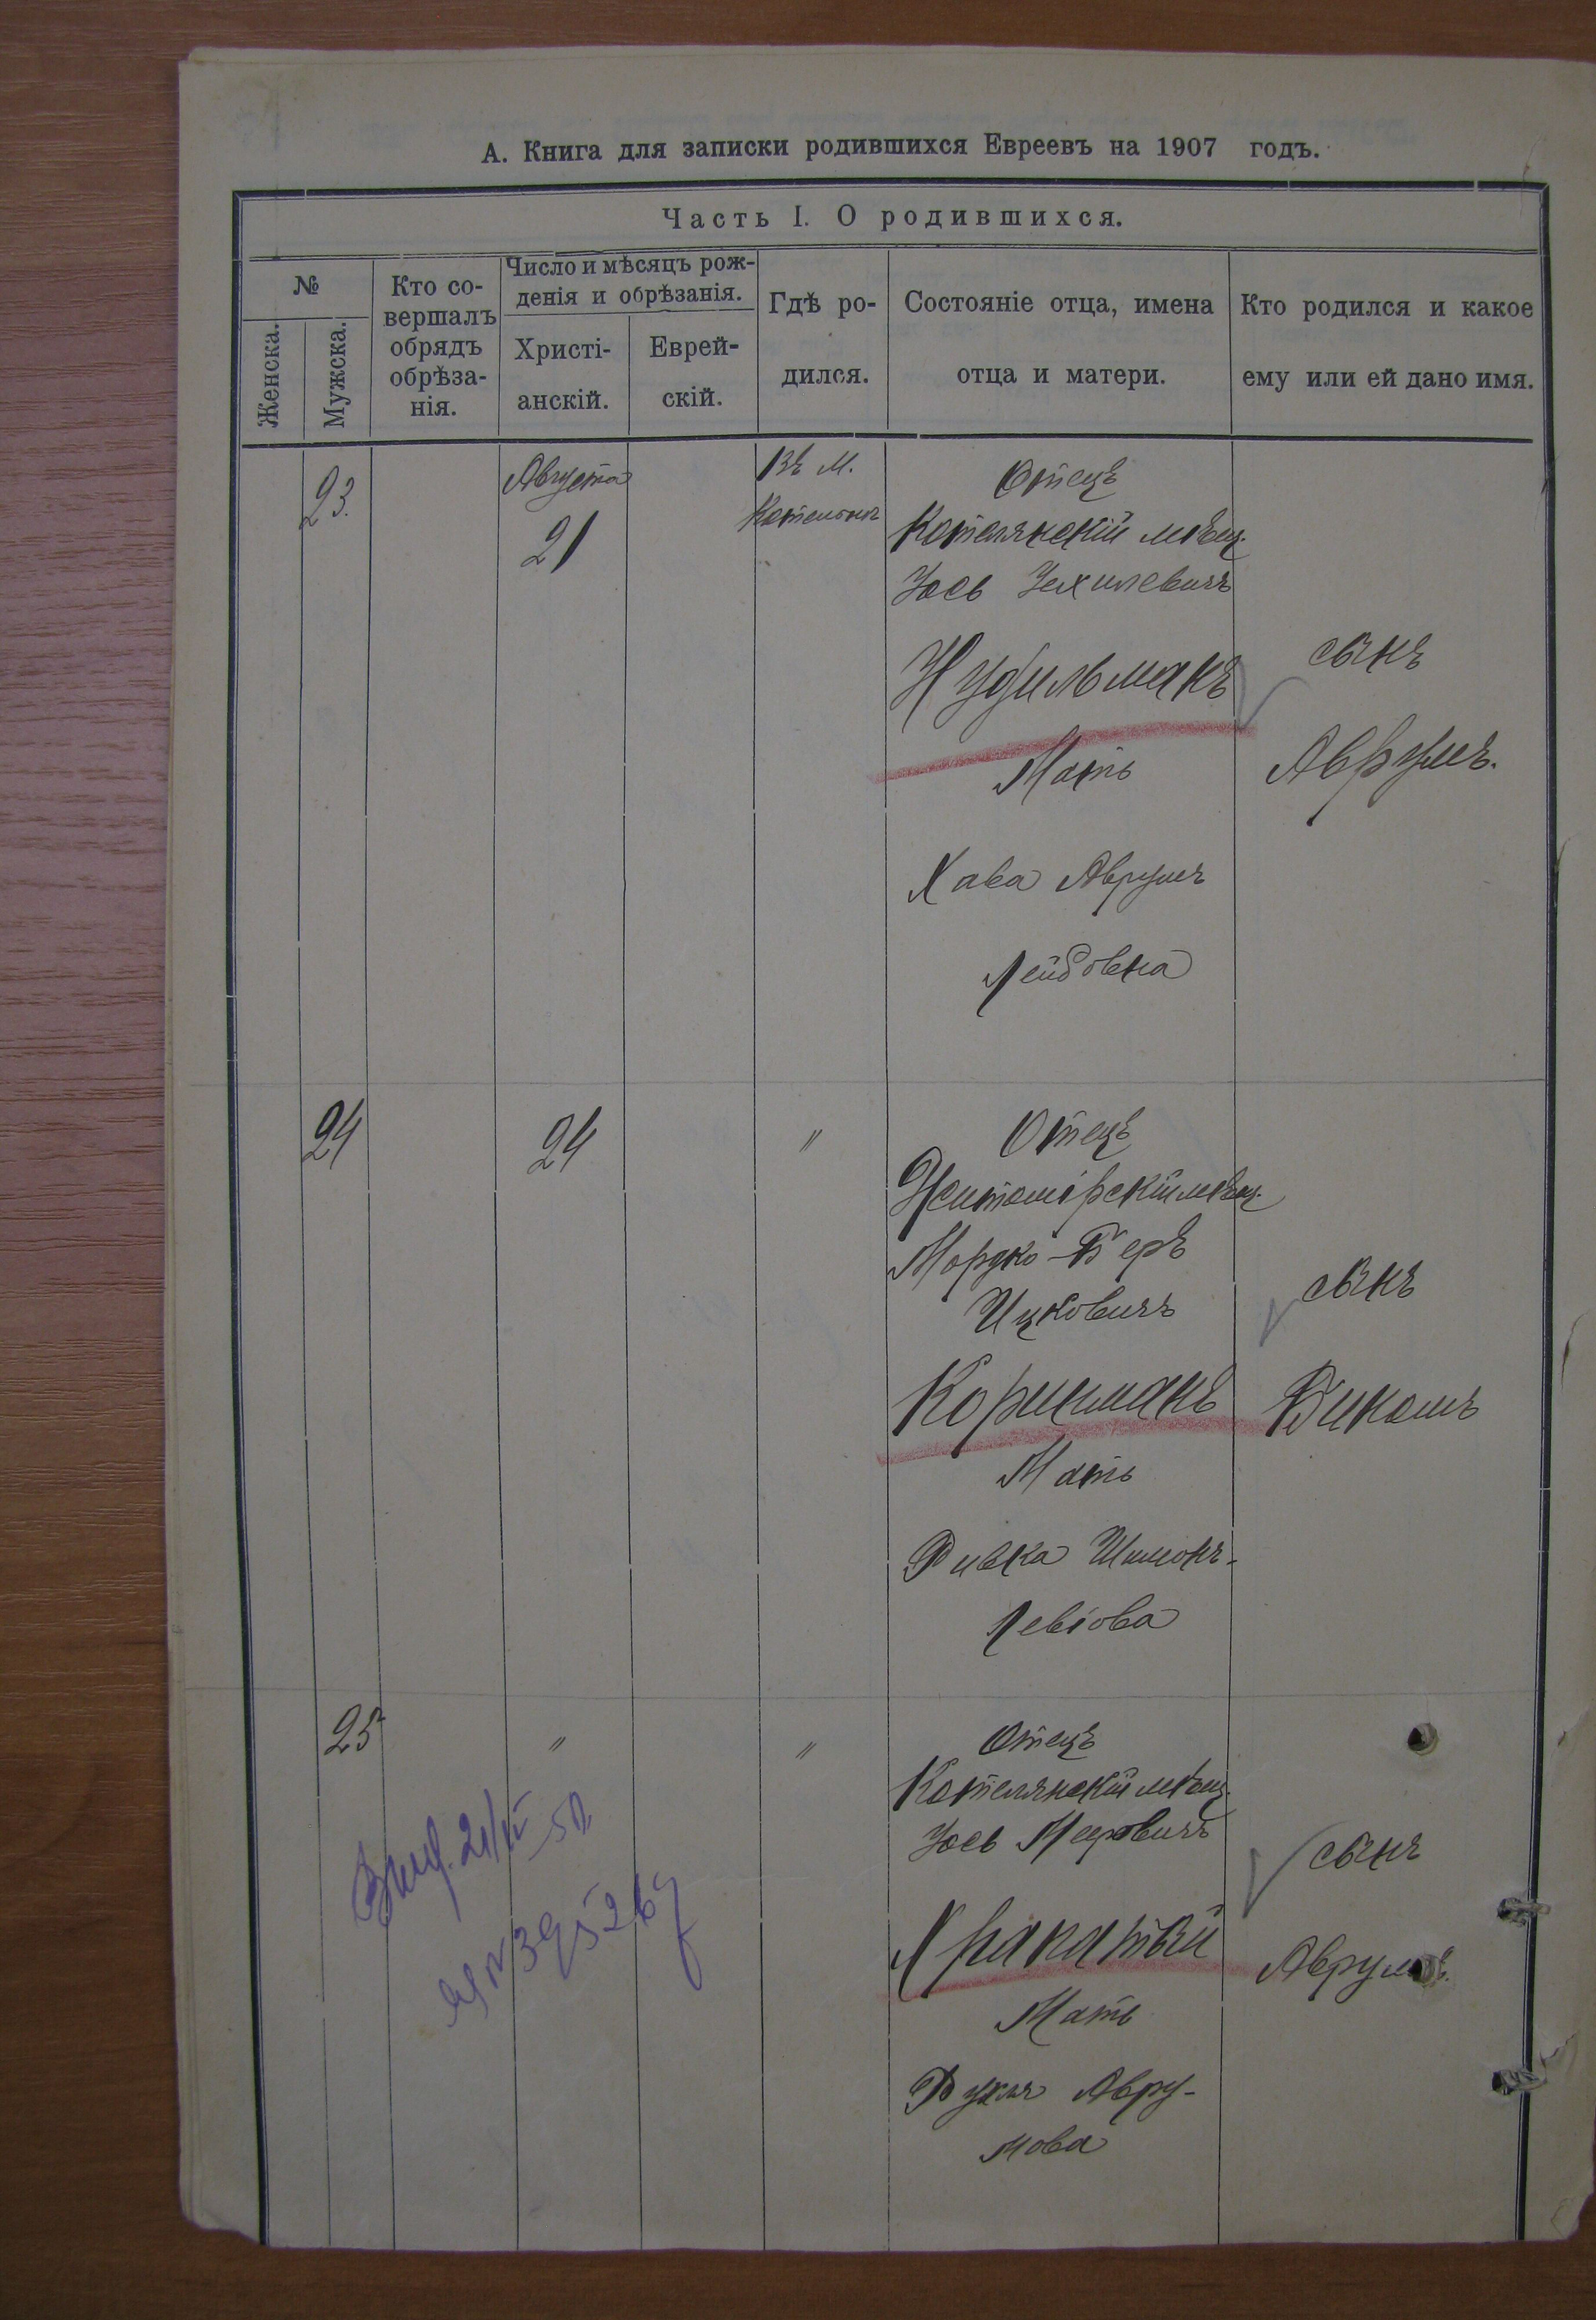 А. Книга для записки родившихся Евреевъ на 1907 годъ.
Часть I. О родившихся.
№
Женска.
Мужска.
Кто со-
вершалъ
обрядъ
обрѣза-
нія.
Число и мѣсяцъ рож-
денія и обрѣзанія.
Христі-
анскій.
Еврей-
скій.
Гдѣ ро-
дился.
Состояніе отца, имена
отца и матери.
Кто родился и какое
ему или ей дано имя.
23.
Августа
21
Въ м.
Котельнѣ
Отецъ
Котелянскій мѣщ.
Іось Іехилевичъ
Нудильманъ
Мать
Хава Аврумъ
Лейбовна
сынъ
Аврумъ.
24
24
"
Отецъ
Житомірскій мѣщ.
Мордко-Беръ
Ицковичъ
Коринманъ
Мать
Ривка Шимонъ-
Левіова
сынъ
25
"
"
Отецъ
Котелянскій мѣщ.
Іось Мееровичъ
Храпатый
Мать
Рухля Авру-
мова
сынъ
Аврумъ.